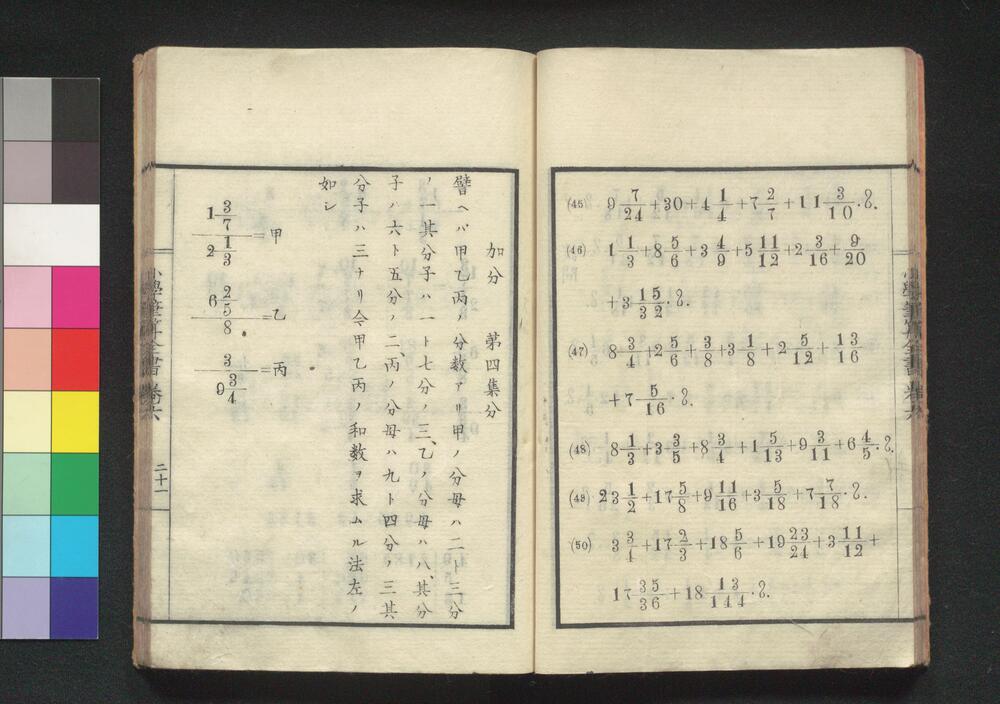 (45) 9 7/24 + 30 + 4 1/4 + 7 2/7 + 11 3/10 .
(46) 1 1/3 + 8 5/6 + 3 4/9 + 5 11/12 + 2 3/16 + 9/20
+ 3 15/32 .
(47) 8 3/4 + 2 5/6 + 3/8 + 3 1/8 + 2 5/12 + 13/16
+ 7 5/16 .
(48) 8 1/3 + 3 3/5 + 8 3/4 + 1 5/13 + 9 3/11 + 6 4/5 .
(49) 23 1/2 + 17 5/8 + 9 11/16 + 3 5/18 + 7 7/18 .
(50) 3 3/4 + 17 2/3 + 18 5/6 + 19 23/24 + 3 11/12 +
17 35/36 + 18 13/144 .
小學筆算全書 卷六
加分 第四集分
譬ヘバ甲乙丙ノ分数アリ甲ノ分母ハ二ト三分
ノ一其分子ハ一ト七分ノ三、乙ノ分母ハ八、其分
子ハ六ト五分ノ二、丙ノ分母ハ九ト四分ノ三其
分子ハ三ナリ今甲乙丙ノ和数ヲ求ムル法左ノ
如シ
1 3/7
2 1/3
=甲
6 2/5
8
=乙
3
9 3/4
=丙
小學筆算全書 卷六
二十一